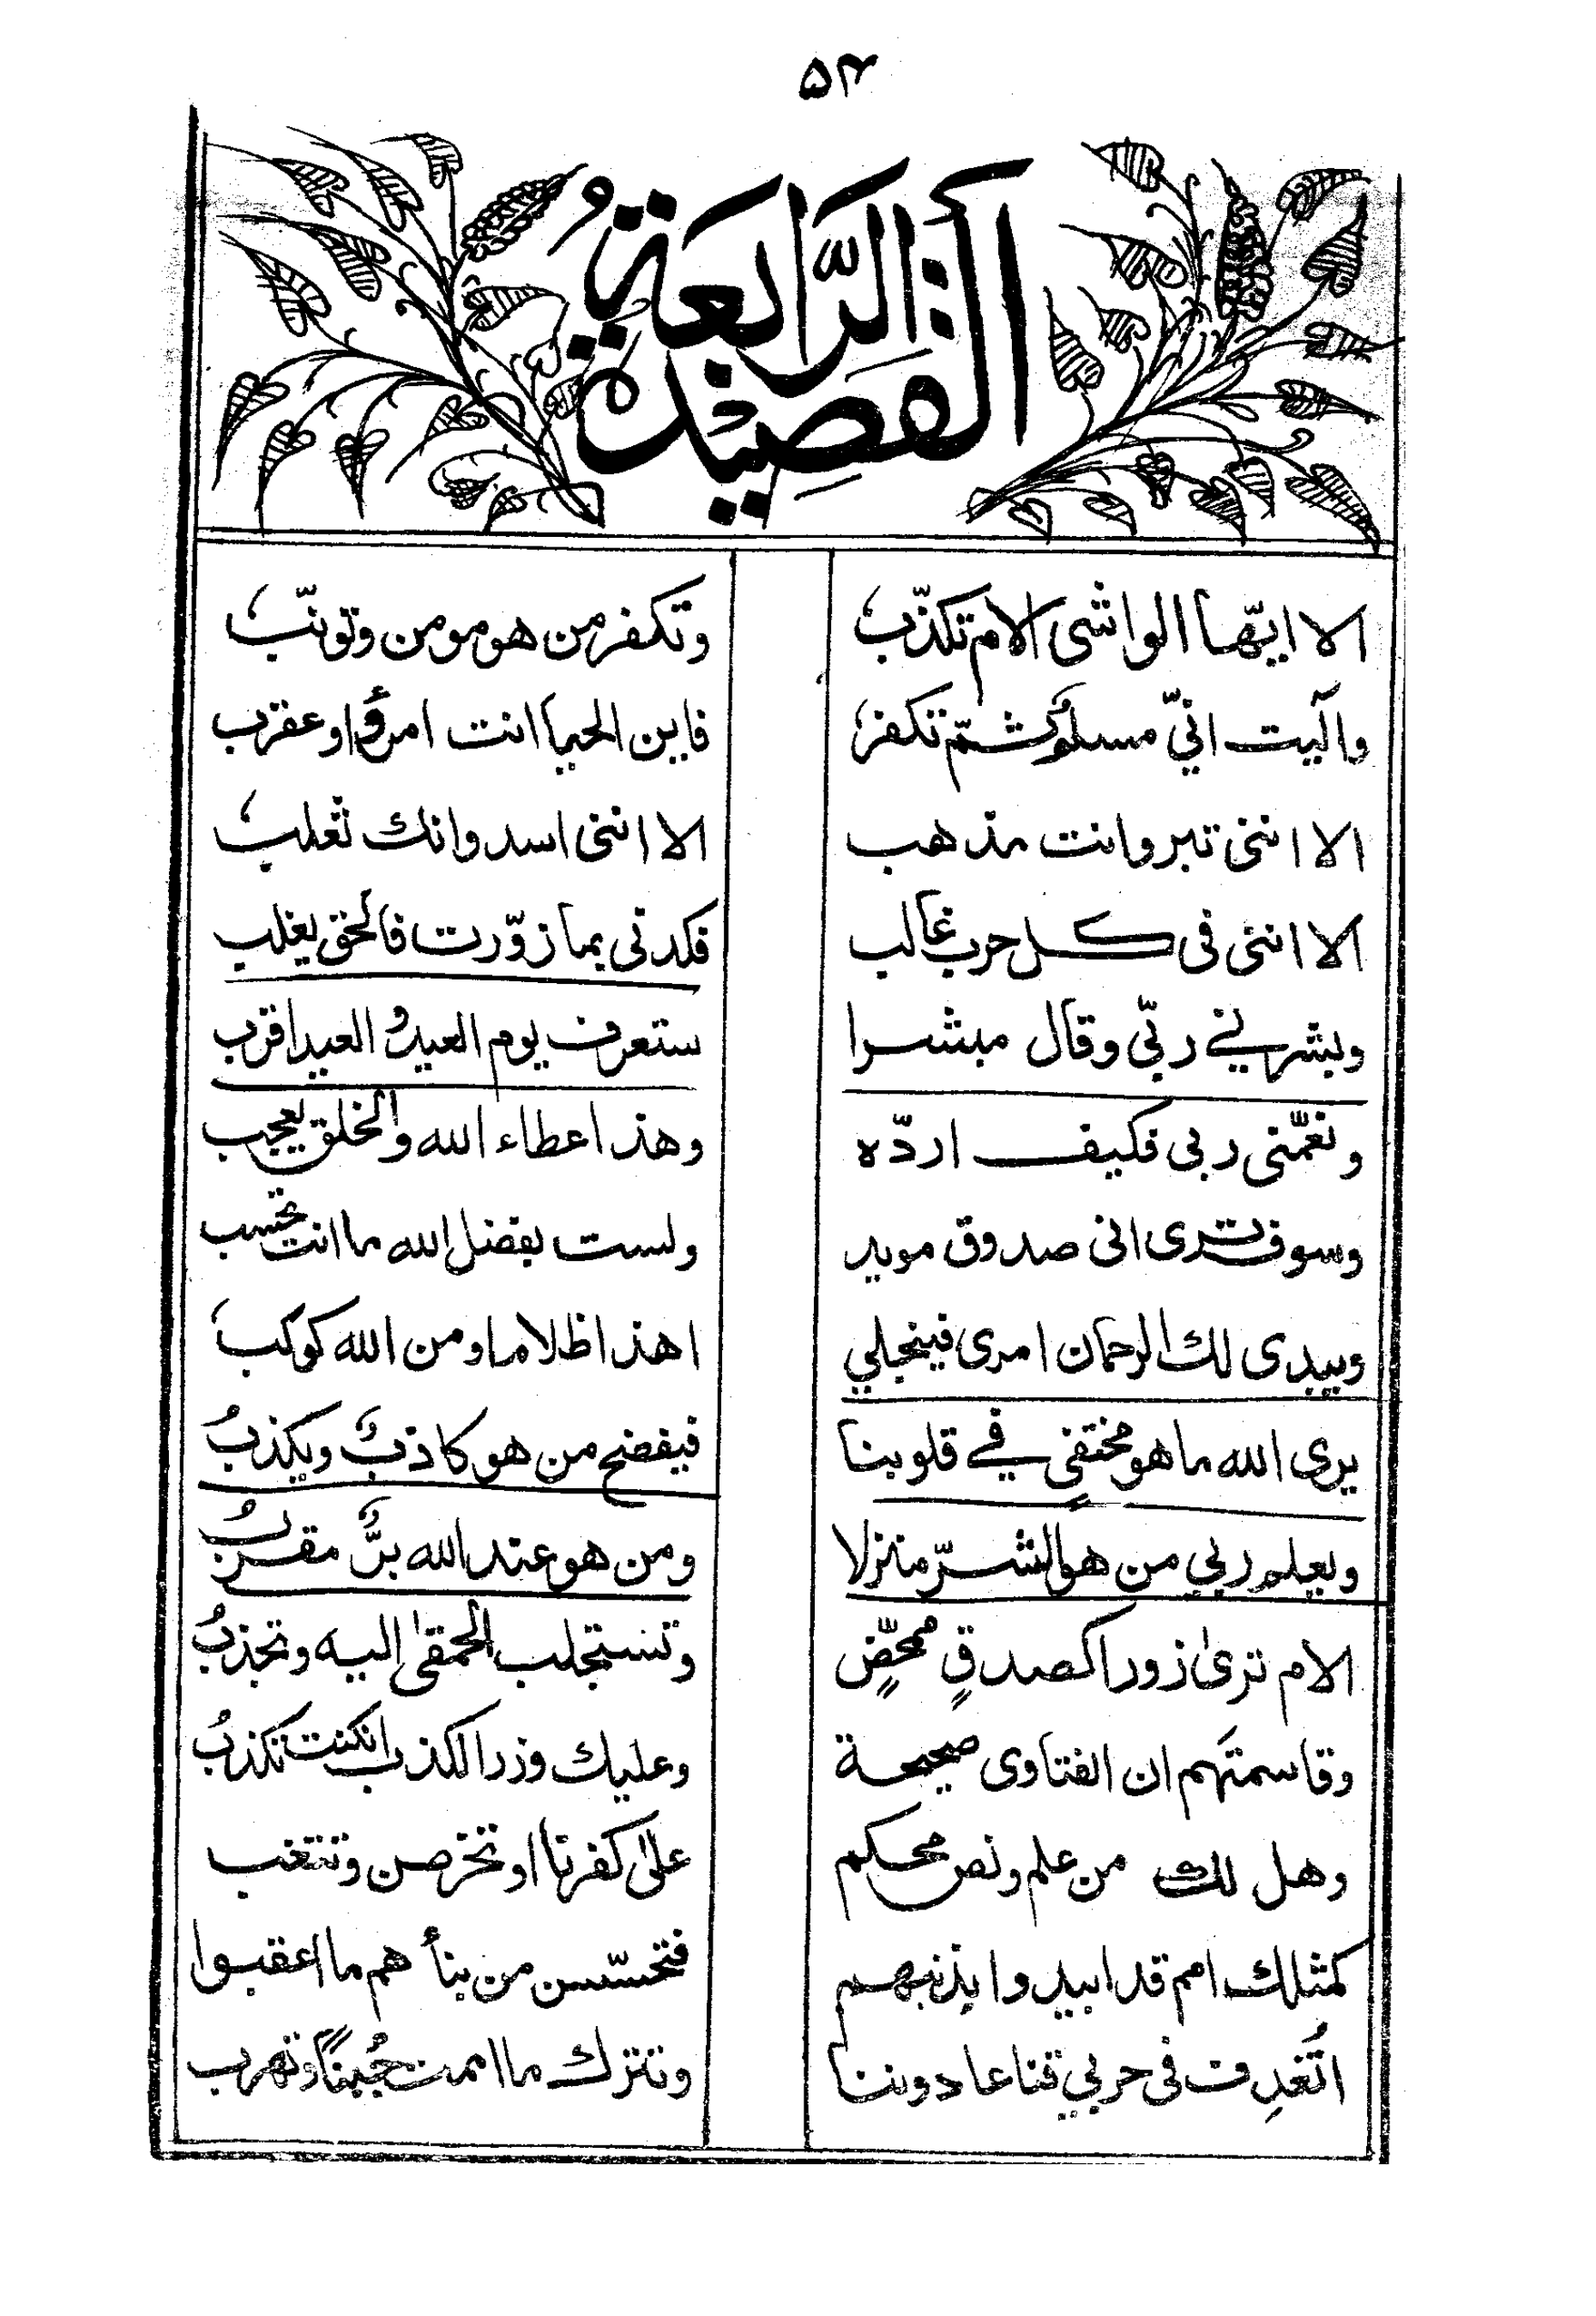 ۵۴
القصیدۃ الرّابعۃُ
الا ایّھا الواشی الام تکذّبٗ وتکفر من ھو مومن وتونّبٗ
واٰلیت انّی مسلم ثمّ تکفرٗ فاین الحیا انت امرؤ او عقرب
الا اننی تبر وانت مذھب الا اننی اسد وانک ثعلبٗ
الا اننی فی کل حرب غالب فکدنی بما زوّرت فالحق یغلب
وبشرنی ربّی وقال مبشرا ستعرف یوم العید والعید اقرب
ونعّمنی ربی فکیف اردّہ وھذا عطاء اللہ والخلق یعجب
وسوف تری انی صدوق موید ولست بفضل اللہ ما انت تحسب
ویبدی لک الرحمان امری فینجلی اھذا ظلام او من اللہ کوکبٗ
یری اللہ ما ھو مختفیٍ فی قلوبنا فیفضح من ھو کاذبٌ ویکذبُ
ویعلم ربی من ھو الشرّ منزلا ومن ھو عند اللہ برٌّ مقربُ
الام تریٰ زورا کصدقٍ ممحّضٍ وتستجلب الحمقیٰ الیہ وتجذبُ
وقاسمتھم ان الفتاوی صحیحۃ وعلیک وزر الکذب انکنت تکذبُ
وھل لک من علم ونص محکم علیٰ کفرنا او تخرصن وتتغب
کمثلک امم قد ابیدوا بذنبھم فتحسّسن من نبأھم ما اعقبوا
اتُغدِف فی حربی قناعا دوننا وتترک ما اممت جُبنًا وتھرب